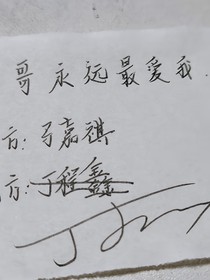 哥永远最愛我.
方:马嘉祺
方:丁程鑫